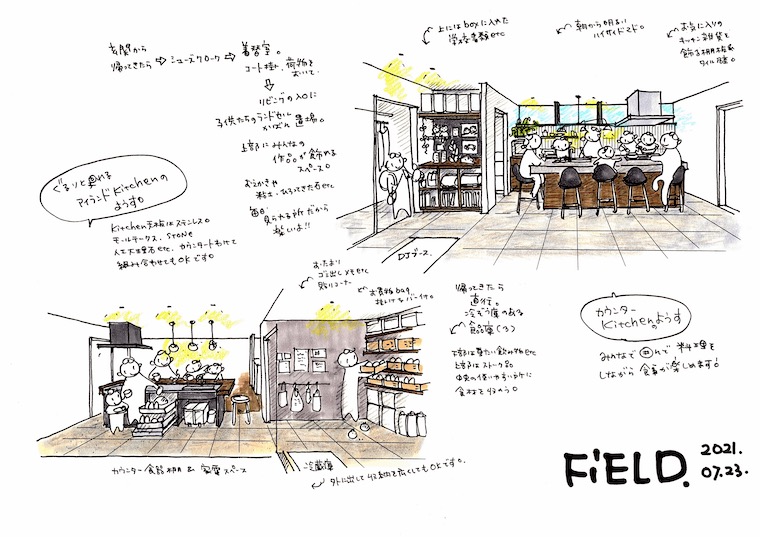 玄関から
帰ってきたら ⇨ シューズクローク ⇨ 着替室。
コート掛け、荷物を
おいて、
リビングの入口に
子供たちのランドセル
かばん置場。
上部にみんなの
作品が飾れる
スペース。
おえかきや
粘土、ひろってきた石etc
毎日
見られる所だから
楽しいよ!!
上にはboxに入れた
学校書類etc
朝から明るい
ハイサイドマド。
お気に入りの
キッチン雑貨を
飾る棚板&
タイル膳。
ぐるりと回れる
アイランドKitchenの
ようす。
Kitchen天板はステンレス。
モールテックス、STONE
人工大理石etc、カウンターとわけて
組み合わせてもOKです。
DJブース。
おたより
ゴミ出しメモetc
貼りコーナー
お買物bag
掛けけるバー付。
帰ってきたら
直行。
冷ぞう庫のある
食品庫(3)
上部は
上部はストック品
中央の使いやすい所に
食材を
カウンター
Kitchenのようす
みんなで囲んで料理を
しながら食事が楽しめます!
カウンター食器棚&家電スペース
冷蔵庫
外に出して収納を広くしてもOKです。
FiELD.
2021.
07.23.